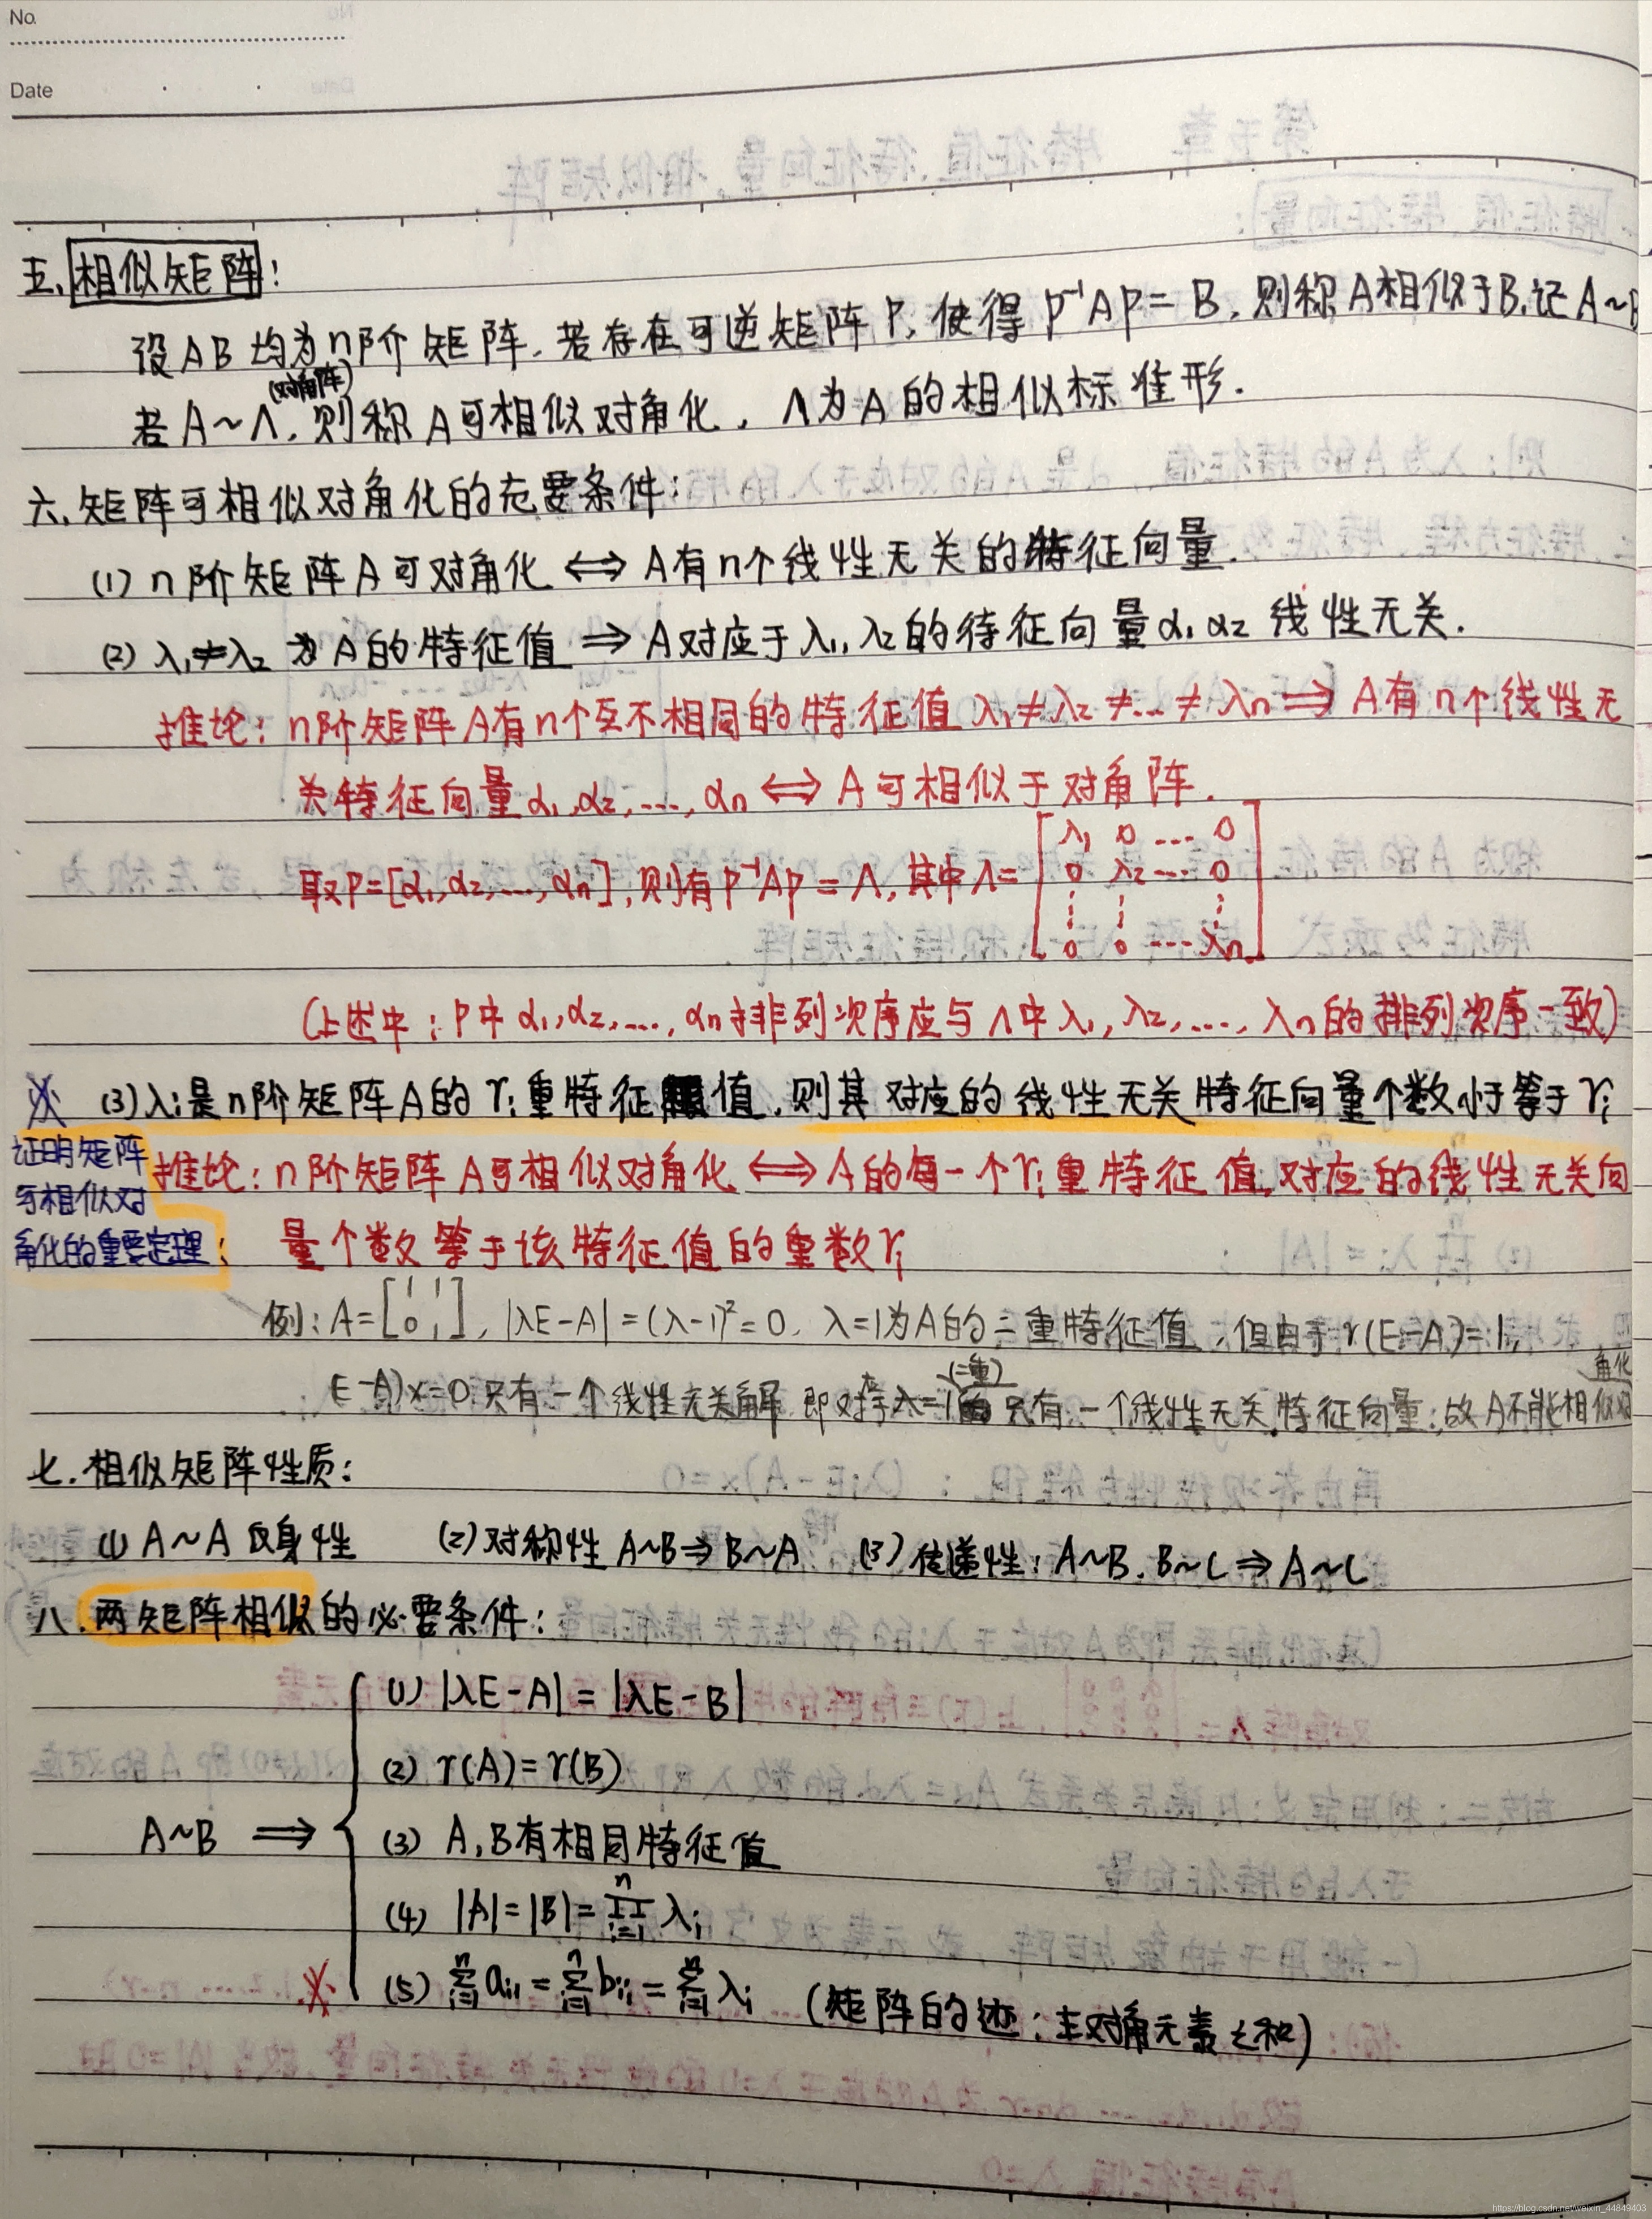 No.
Date
五、相似矩阵:
设AB均为n阶矩阵,若存在可逆矩阵P,使得P⁻¹AP=B,则称A相似于B,记A~B
(对角阵)
若A~Λ,则称A可相似对角化,Λ为A的相似标准形.
六、矩阵可相似对角化的充要条件:
(1) n阶矩阵A可对角化 ⟺ A有n个线性无关的特征向量.
(2) λ₁≠λ₂为A的特征值 ⟹ A对应于λ₁,λ₂的特征向量α₁ α₂ 线性无关.
推论: n阶矩阵A有n个互不相同的特征值λ₁≠λ₂≠...≠λn ⟹ A有n个线性无
关特征向量α₁,α₂,...,αn ⟺ A可相似于对角阵.
取P=[α₁,α₂,...,αn],则有P⁻¹AP=Λ,其中Λ= [λ₁ 0 ... 0
0 λ₂ ... 0
⋮ ⋮ ⋮
0 0 ... λn]
(上述中:P中α₁,α₂,...,αn排列次序应与Λ中λ₁,λ₂,...,λn的排列次序一致)
※ (3) λi是n阶矩阵A的ri重特征值,则其对应的线性无关特征向量个数小于等于ri
证明矩阵
可相似对
角化的重要定理:
推论: n阶矩阵A可相似对角化 ⟺ A的每一个ri重特征值,对应的线性无关向
量个数等于该特征值的重数ri
例: A=[1 1
0 1], |λE-A|=(λ-1)²=0, λ=1为A的二重特征值,但由于r(E-A)=1,
(E-A)x=0只有一个线性无关解 即对应λ=1(二重)只有一个线性无关特征向量,故A不能相似对角化
七.相似矩阵性质:
(1) A~A 反身性 (2)对称性 A~B⇒B~A (3)传递性: A~B, B~C⇒A~C
八.两矩阵相似的必要条件:
(1) |λE-A|=|λE-B|
(2) r(A)=r(B)
A~B ⟹
(3) A,B有相同特征值
(4) |A|=|B|=∏ⁿᵢ₌₁ λi
※ (5) ∑ⁿᵢ₌₁ aii=∑ⁿᵢ₌₁ bii=∑ⁿᵢ₌₁ λi (矩阵的迹:主对角元素之和)
https://blog.csdn.net/weixin_44849403